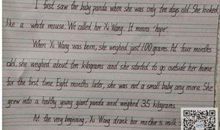 I first saw the baby panda when she was only ten days old. She looked
like a white mouse. We called her Xi Wang. It means "hope".
When Xi Wang was born, she weighed just 100 grams. At four months
old, she weighed about ten kilograms and she started to go outside her home
for the first time. Eight months later, she was not a small baby any more. She
grew into a healthy young giant panda and weighed 35 kilograms.
At the very beginning, Xi Wang drank her mother's milk